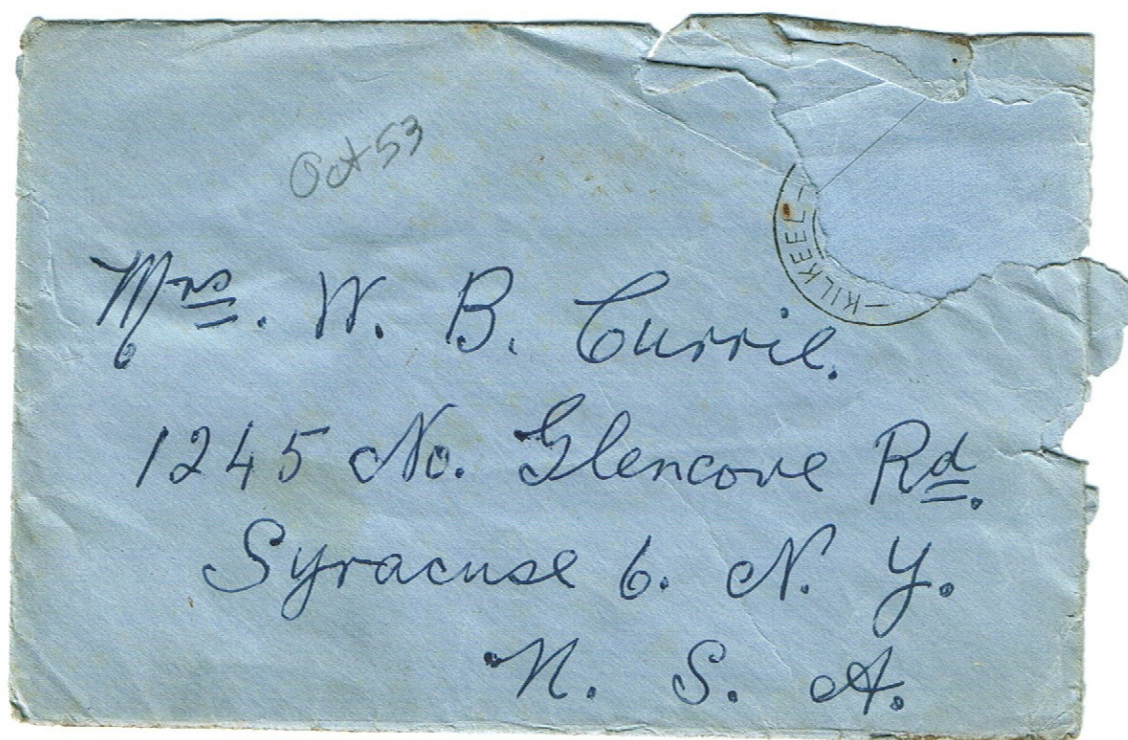 Oct 53
- KILKEEL -
Mrs. W. B. Currie.
1245 No. Glencove Rd.
Syracuse 6. N. Y.
U. S. A.